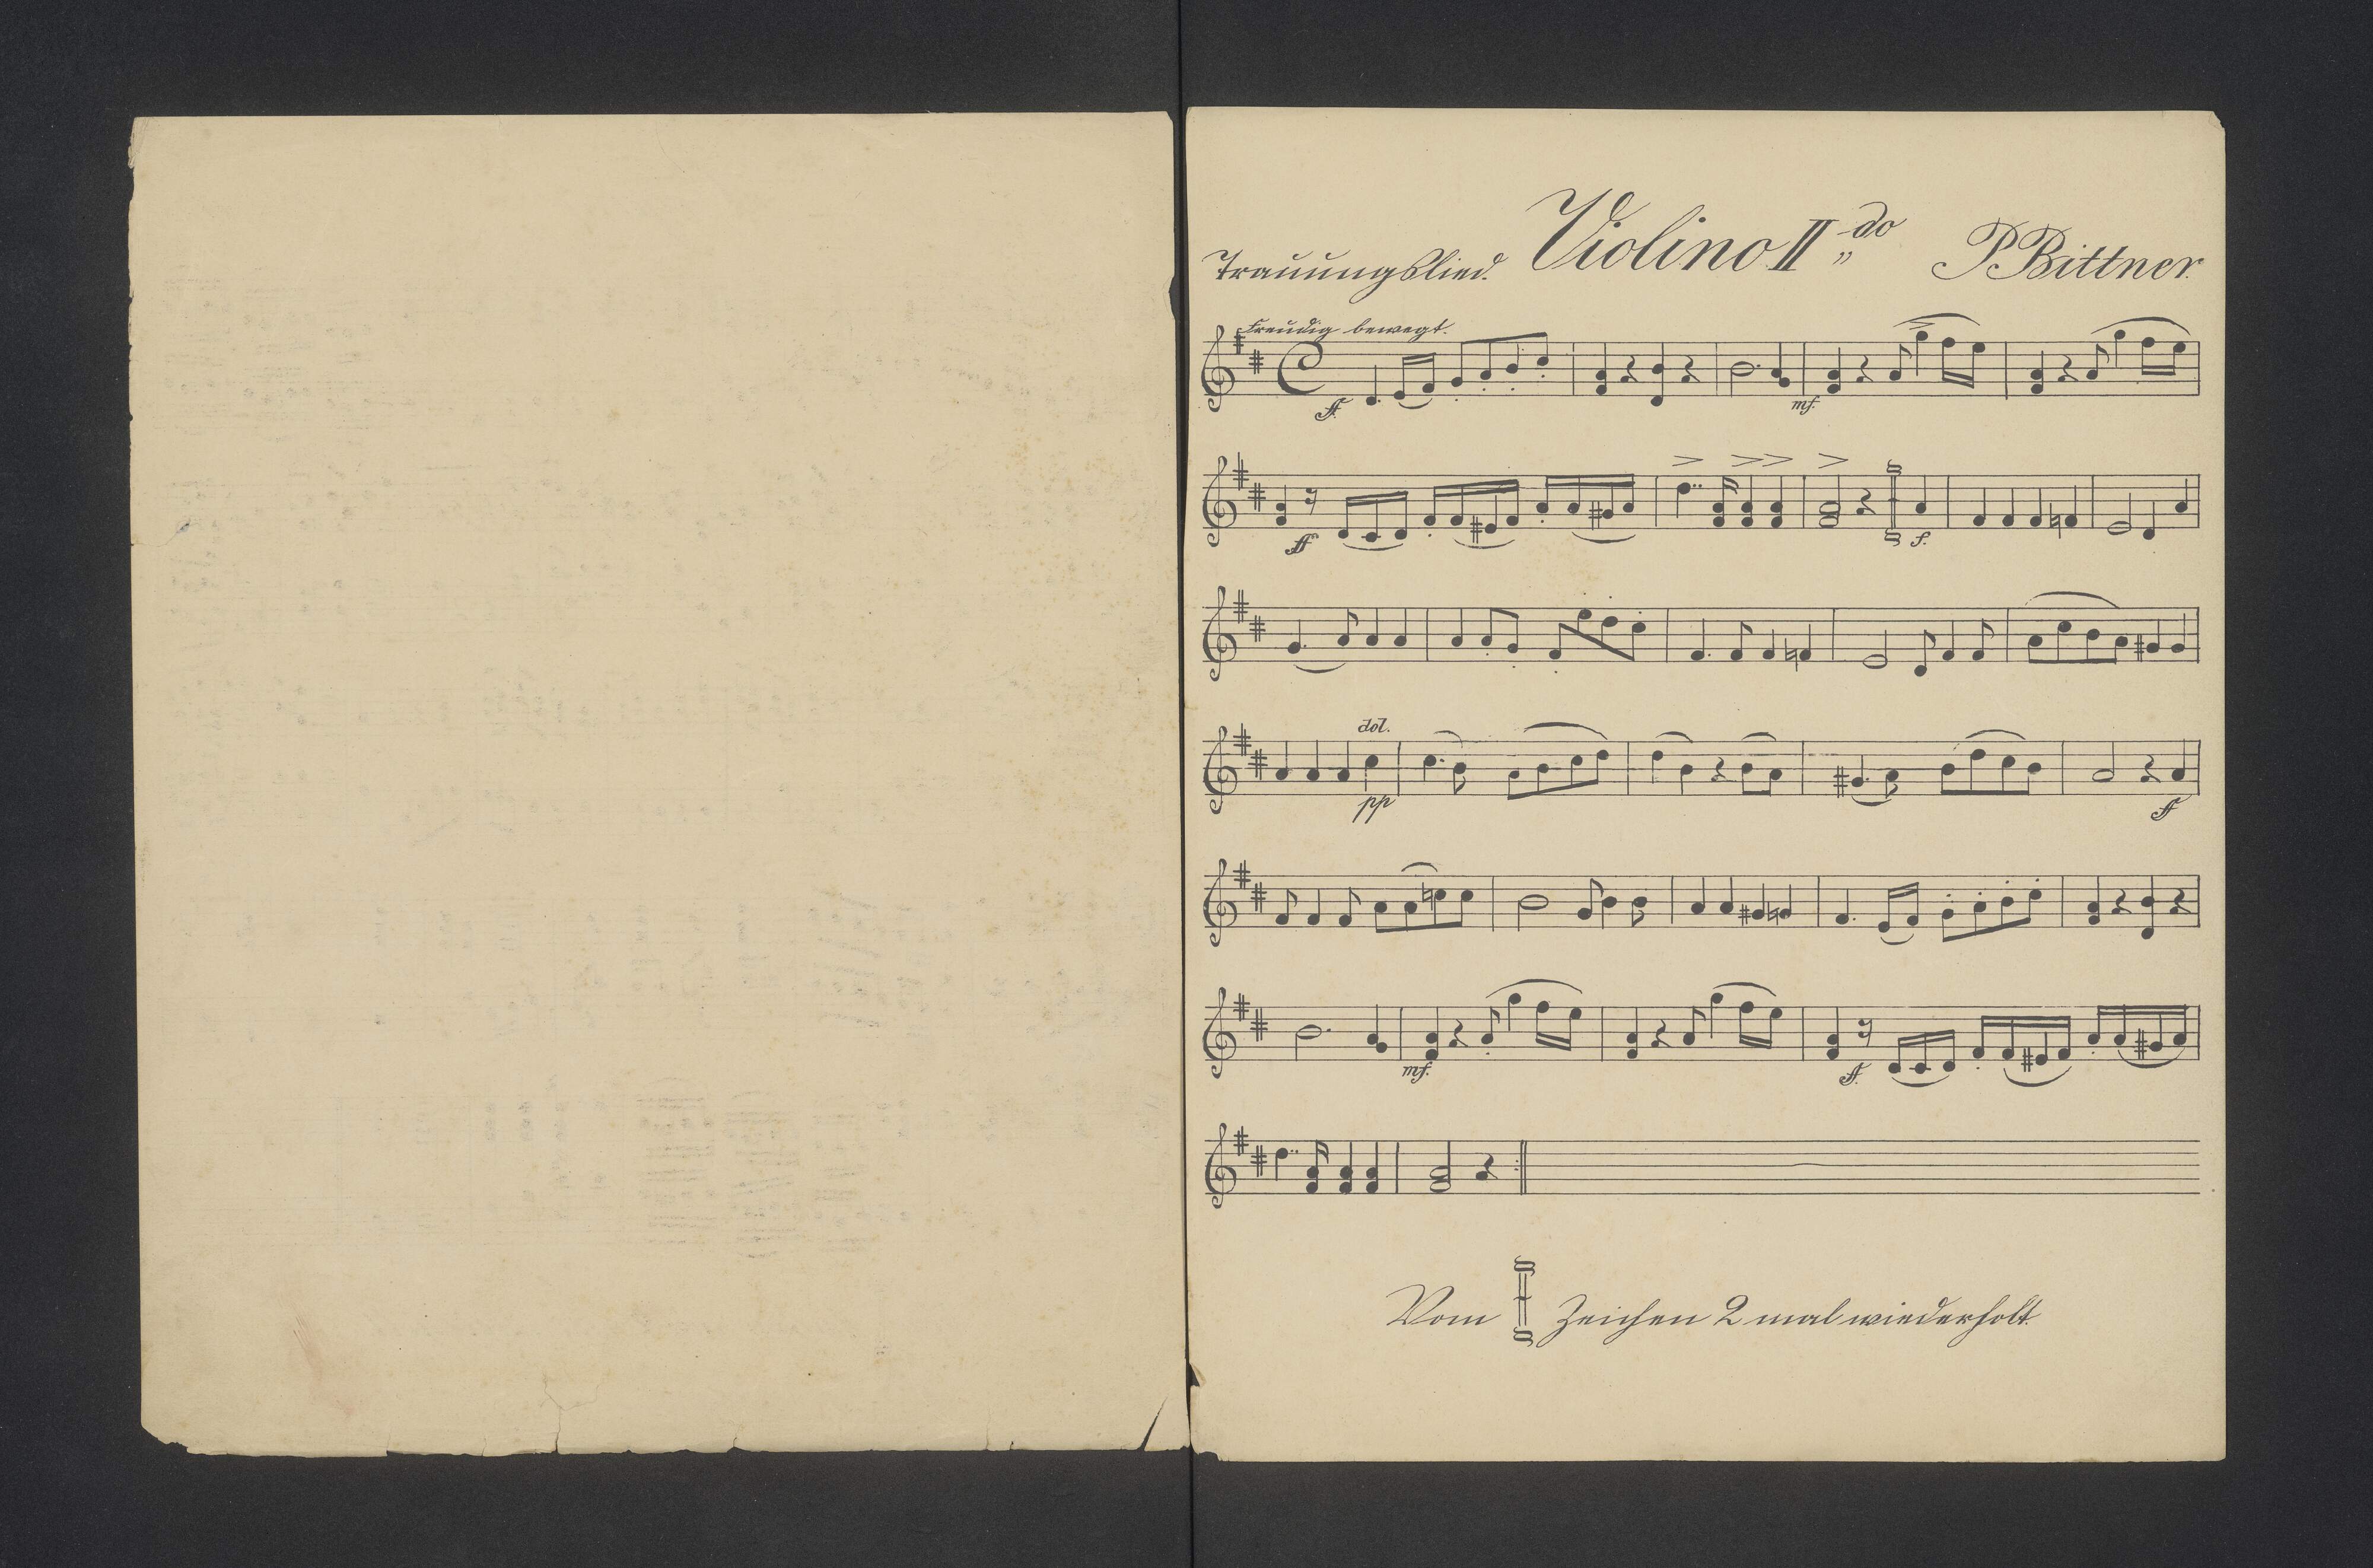 Trauungslied. Violino II do P Bittner.
Freudig bewegt.
ff. mf.
ff f.
dol.
pp ff
mf. ff.
Vom Zeichen 2 mal wiederholt.